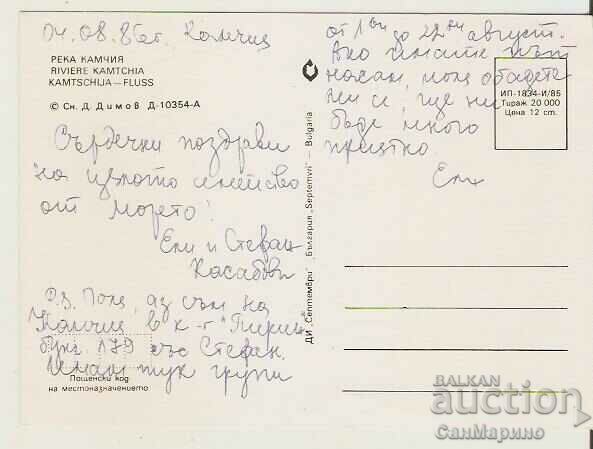 04.08.86г. Камчия
РЕКА КАМЧИЯ
RIVIERE KAMTCHIA
KAMTSCHIJA — FLUSS
© Сн. Д. Димов Д-10354-А
Сърдечни поздрави
на цялото семейство
от морето!
Ели и Стефан
Касабови
P.S. Поля, аз съм на
Камчия в к-г "Пирин"
бунг. 179 със Стефан.
Имам тук групи
Пощенски код
на местоназначението
ДИ „Септември" България „Septemvri" — Bulgaria
от 1ви до 22ри август.
Ако имате път
насам, моля обадете
ни се, ще ни
бъде много
приятно.
Ели
ИП-1834-И/85
Тираж 20 000
Цена 12 ст.
BALKAN
auction
СанМарино